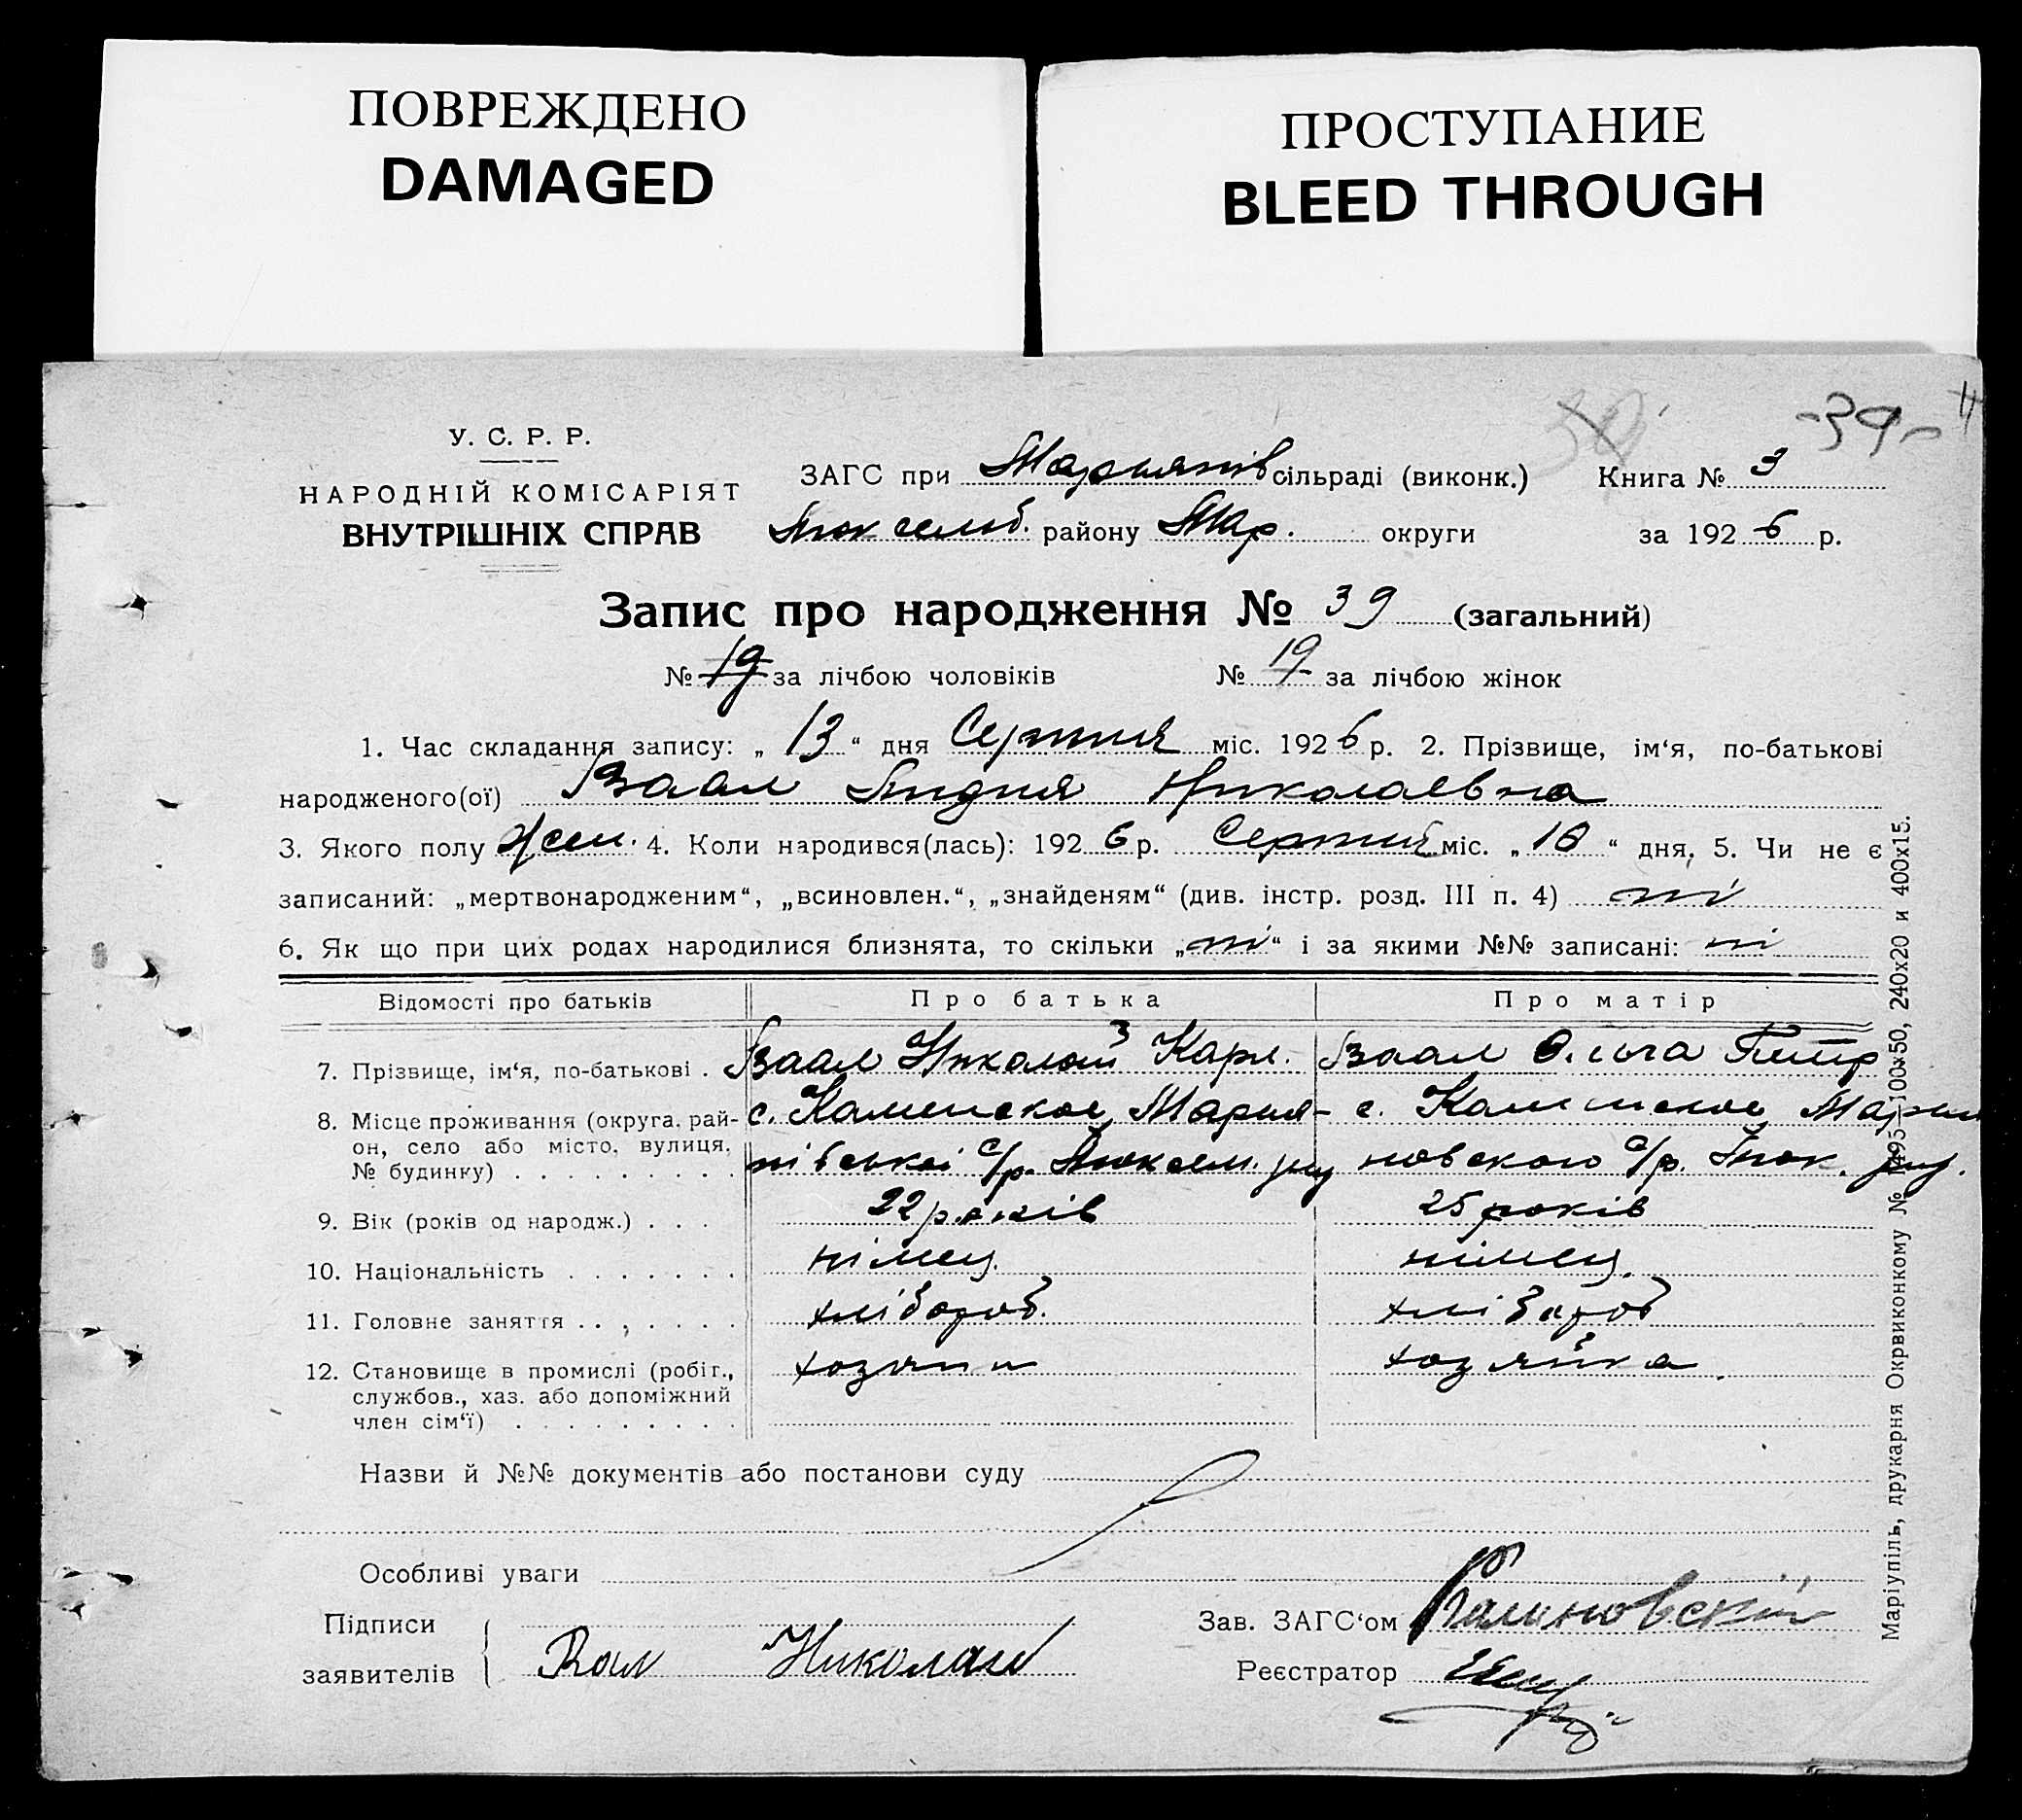 ПОВРЕЖДЕНО
DAMAGED
ПРОСТУПАНИЕ
BLEED THROUGH
-39-
У. С. Р. Р.
НАРОДНІЙ КОМІСАРІЯТ
ВНУТРІШНІХ СПРАВ
ЗАГС при Мариянів сільраді (виконк.) Книга № 3
Люксемб. району Мар. округи за 1926 р.
Запис про народження № 39 (загальний)
№ 19 за лічбою чоловіків № 19 за лічбою жінок
1. Час складання запису: „ 13 “ дня Серпня міс. 1926 р. 2. Прізвище, ім‘я, по-батькові
народженого(ої) Ваал Лидия Николаевна
3. Якого полу жен. 4. Коли народився(лась): 1926 р. Серпня міс. „ 10 “ дня, 5. Чи не є
записаний: „мертвонародженим“, „всиновлен.“, „знайденям“ (див. інстр. розд. III п. 4) ні
6. Як що при цих родах народилися близнята, то скільки „ ні “ і за якими №№ записані: ні
Відомості про батьків Про батька Про матір
7. Прізвище, ім‘я, по-батькові . Ваал Николай Карл. Ваал Ольга Петр
8. Місце проживання (округа, рай- с. Каменское Мария- с. Каменское Мариа
он, село або місто, вулиця, нівської с/р. Люксем. рну новского с/р. Люк. рну.
№ будинку) . . . . . . . . .
9. Вік (років од народж.) . . . 22 років 25 років
10. Національність . . . . . . . німец. німец.
11. Головне заняття . . , . . . . хлібороб. хлібороб
12. Становище в промислі (робіг., хозяин хозяйка
службов., хаз. або допоміжний
член сім‘ї) . . . . . . . . .
Назви й №№ документів або постанови суду
Особливі уваги
Підписи
заявителів Ваал Николай
Зав. ЗАГС‘ом Калиновский
Реєстратор
Маріупіль, друкарня Окрвиконкому № 1495—100х50, 240х20 и 400х15.